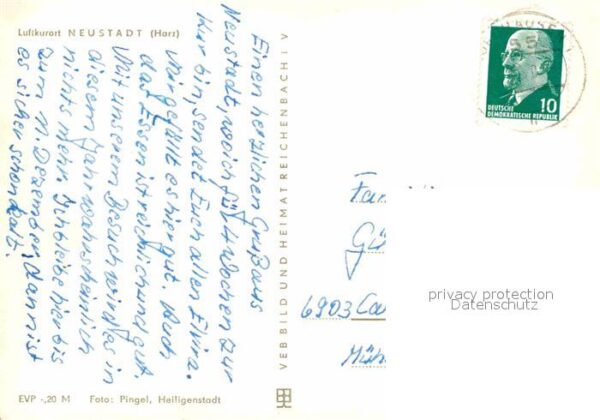 Luftkurort NEUSTADT (Harz)
Einen herzlichen Gruß aus
Neustadt, wo ich für 4 Wochen zur
Kur bin, sendet Euch allen Elvira.
Mir gefällt es hier gut. Auch
das Essen ist reichlich und gut.
Mit unserem Besuch wird es in
diesem Jahr wahrscheinlich
nichts mehr. Ich bleibe hier bis
zum 11. Dezember, dann ist
es sicher schon kalt.
VEB BILD UND HEIMAT REICHENBACH I V
EVP -,20 M Foto: Pingel, Heiligenstadt
10
DEUTSCHE
DEMOKRATISCHE REPUBLIK
Fam
Gü
6903 Ca
Müh
privacy protection
Datenschutz